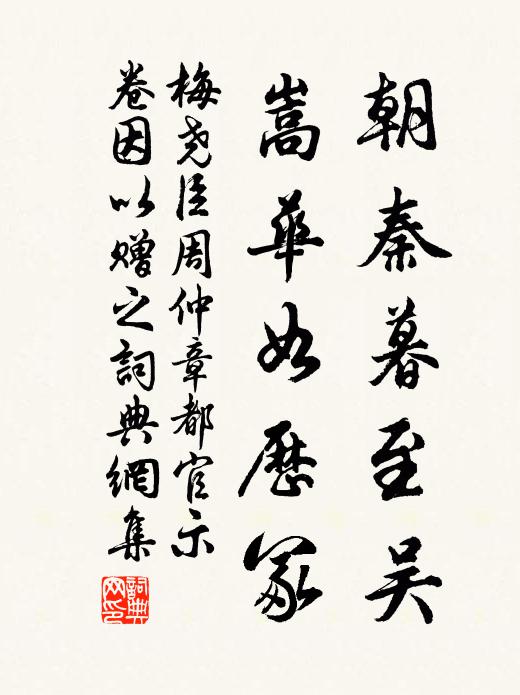 朝秦暮至吴
嵩華如歷冢
梅尧臣周仲章都官示
卷因以赠之詞典網集
詞典网印